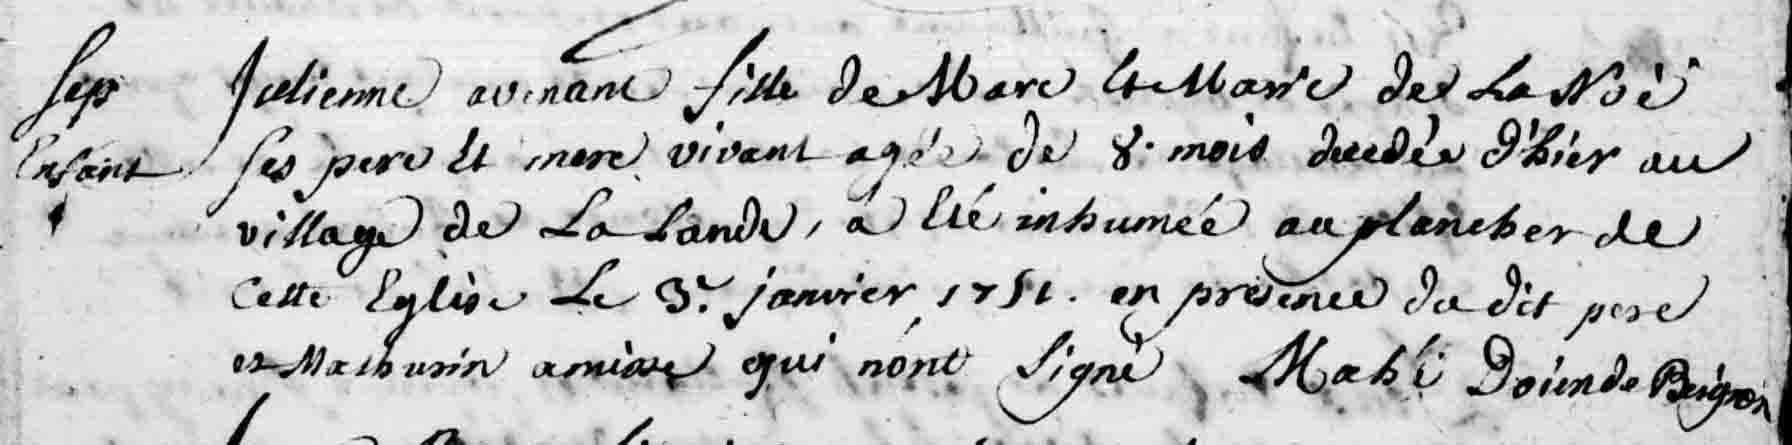 Sep Julienne avenant fille de Marc Et Marie de La Noë
Enfant Ses pere Et mere vivant agée de 8. mois decedée d'hier au
village de La Lande, a Eté inhumée au plancher de
Cette Eglise Le 3. janvier 1751. en présence du dit pere
et Mathurin qui n'ont Signé Mahé Doien de Beignon